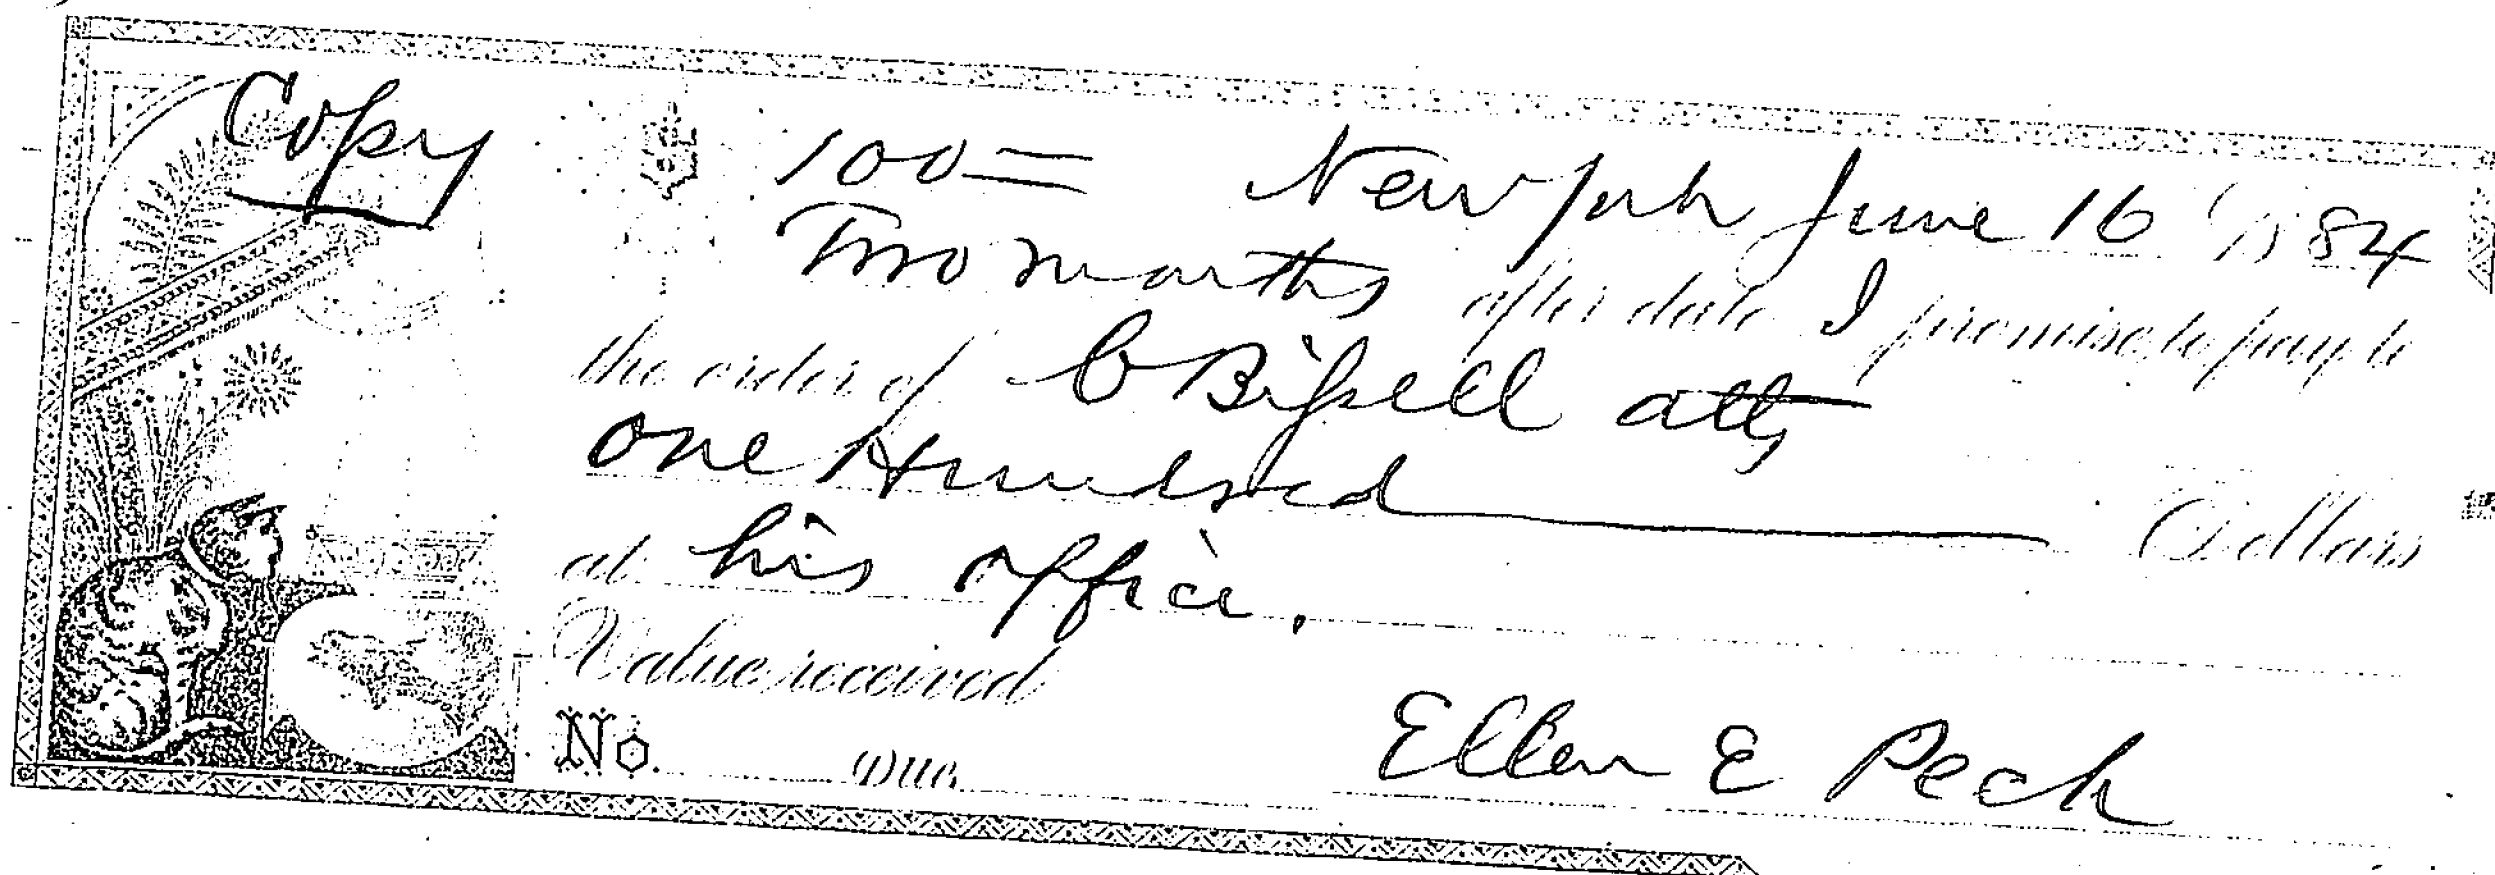 Copy
100= New York June 16 1884
Two months after date I promise to pay to
the order of C Bissell atty
One Hundred Dollars
at his office.
Value received
No. Due Ellen E Peck